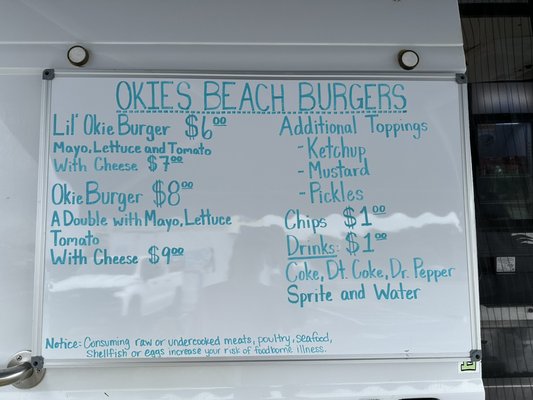 OKIES BEACH BURGERS
Lil' Okie Burger $6.00
Mayo, Lettuce and Tomato
With Cheese $7.00
Okie Burger $8.00
A Double with Mayo, Lettuce
Tomato
With Cheese $9.00
Additional Toppings
- Ketchup
- Mustard
- Pickles
Chips $1.00
Drinks: $1.00
Coke, Dt. Coke, Dr. Pepper
Sprite and Water
Notice: Consuming raw or undercooked meats, poultry, seafood,
Shellfish or eggs increase your risk of foodborne illness.